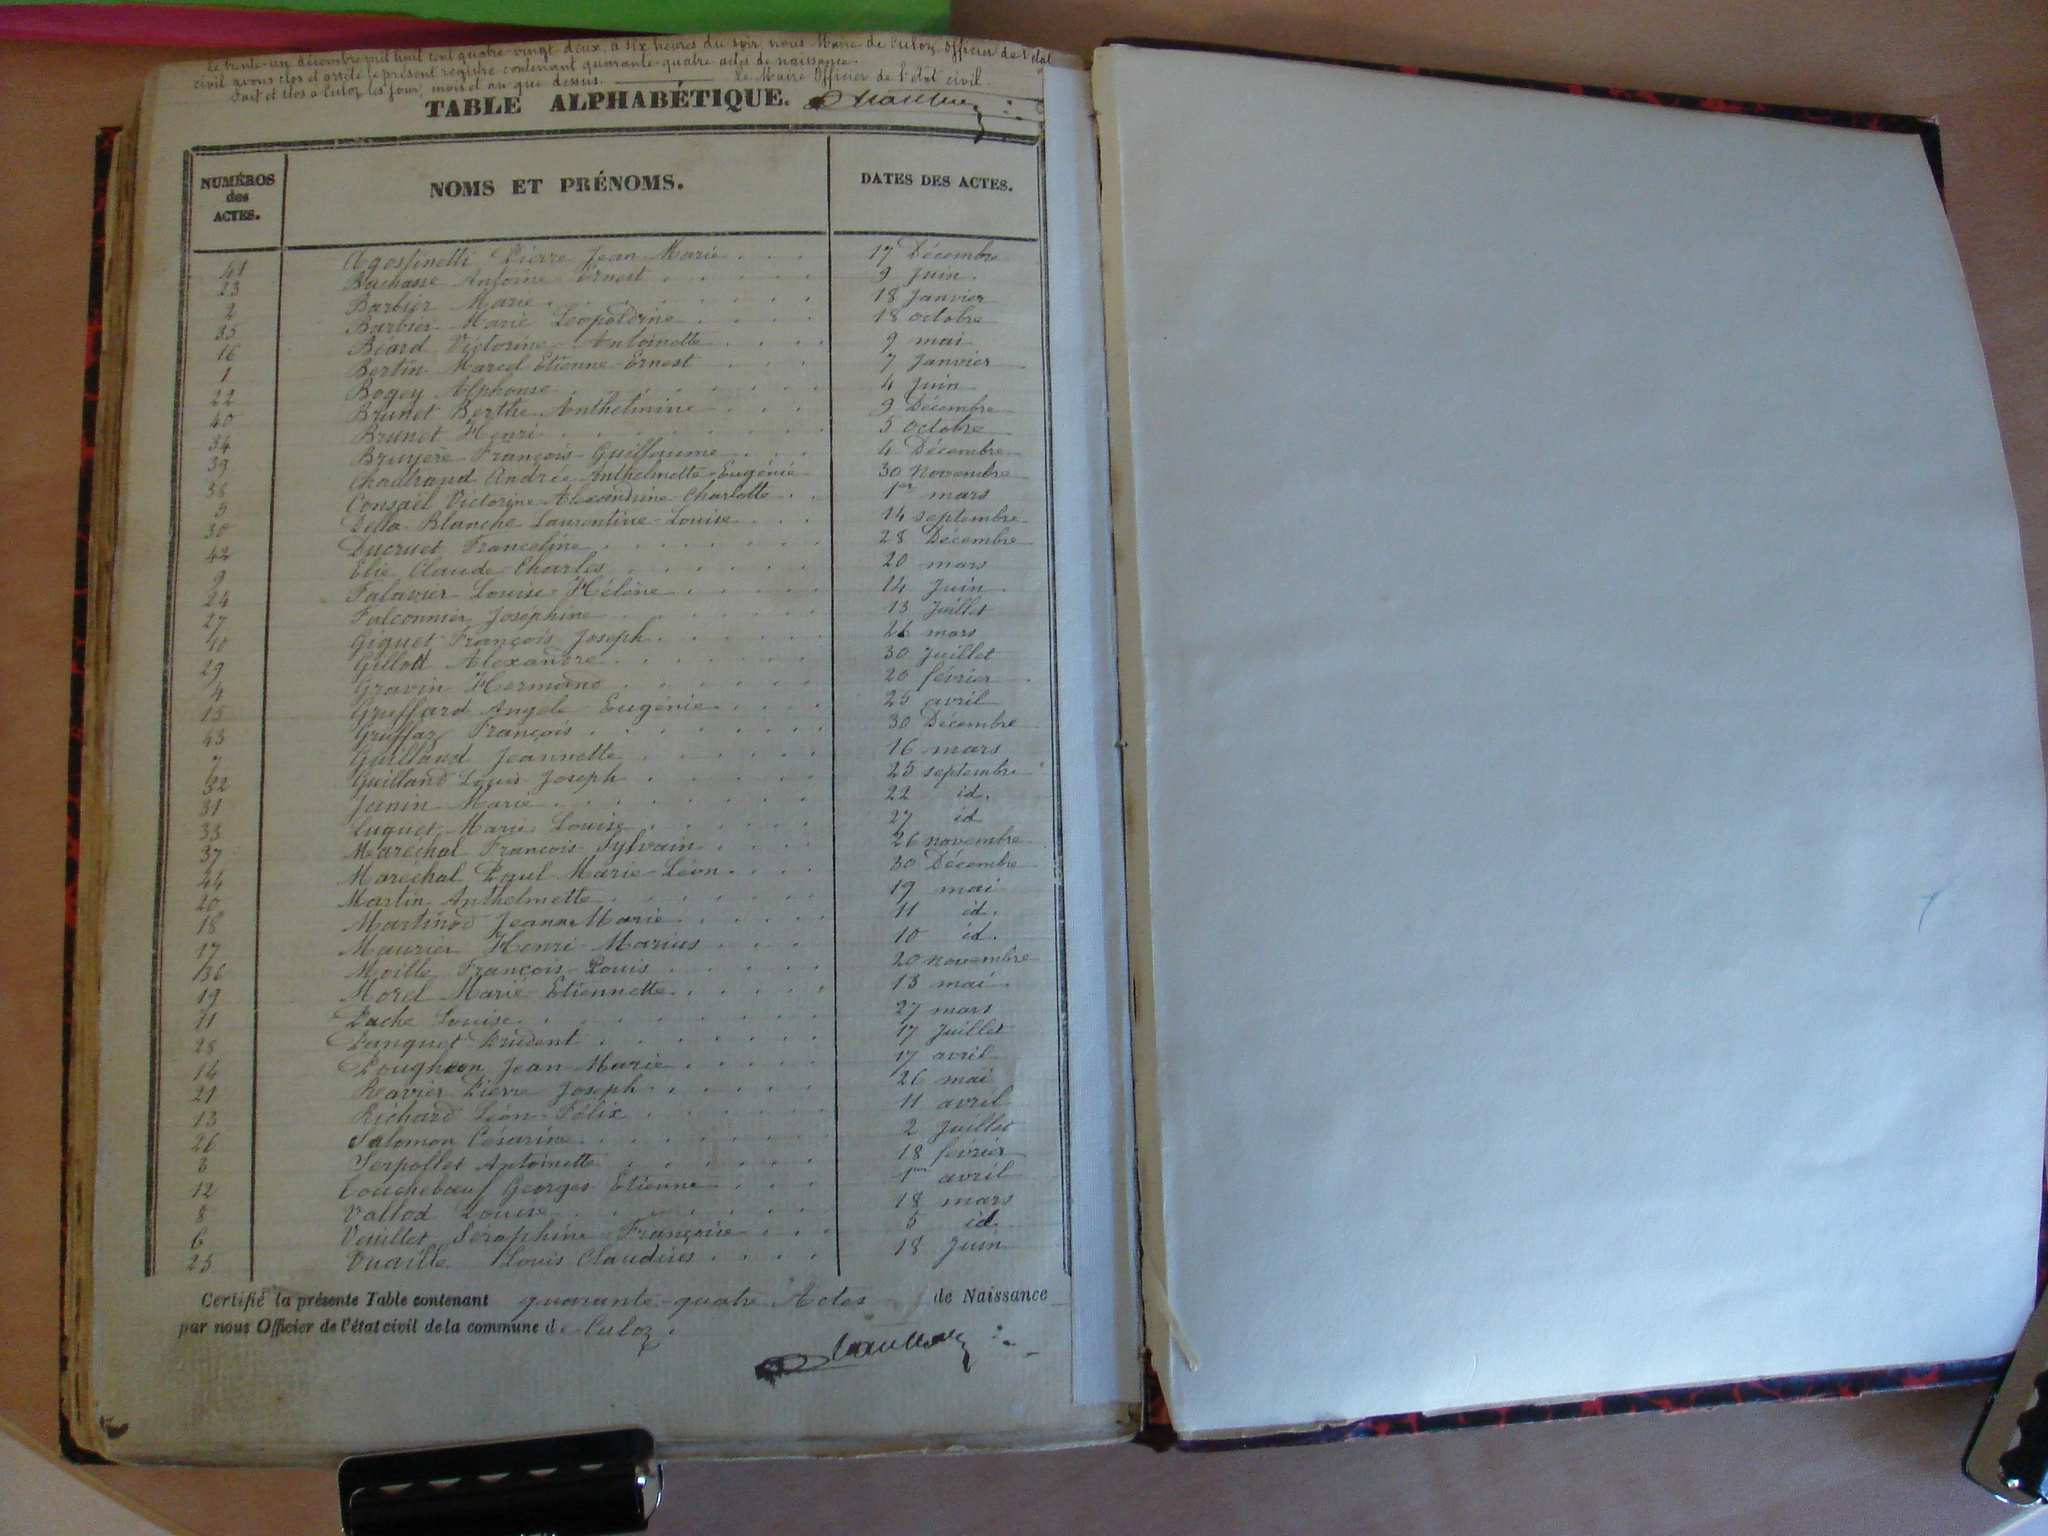 Le trente-un décembre mil huit cent quatre-vingt deux, à six heures du soir, nous Maire de Culoz, Officier de l'état
civil avons clos et arrêté le présent registre contenant quarante-quatre actes de naissance.
Fait et clos à Culoz les jour, mois et an que dessus. Le Maire Officier de l'état civil.
TABLE ALPHABÉTIQUE.
NUMÉROS des ACTES. NOMS ET PRÉNOMS. DATES DES ACTES.
41 Agostinetti Pierre Jean Marie 17 Décembre
23 Bachasse Antoine Ernest 9 Juin
2 Barbier Marie 18 Janvier
35 Barbier Marie Léopoldine 18 octobre
16 Béard Victorine Antoinette 9 mai
1 Bertin Marcel Etienne Ernest 7 Janvier
22 Bogey Alphonse 4 Juin
40 Brunet Berthe Anthelmine 9 Décembre
34 Brunet Henri 5 octobre
39 Bruyere François Guillaume 4 Décembre
38 Andrée Anthelmette Eugénie 30 Novembre
5 Consael Victorine Alexandrine Charlotte 1er mars
30 Della Blanche Laurentine Louise 14 septembre
42 Ducruet Franceline 28 Décembre
9 Elie Claude Charles 20 mars
24 Falavier Louise Hélène 14 Juin
27 Falconnier Joséphine 13 Juillet
10 Giguet François Joseph 26 mars
29 Gillod Alexandre 30 Juillet
4 Gravin Hermand 20 février
15 Gruffard Angele Eugénie 25 avril
43 Gruffaz François 30 Décembre
7 Guilland Jeannette 16 mars
32 Guilland Louis Joseph 25 septembre
31 Janin Marie 22 id.
33 Luguet Marie Louise 27 id
37 Maréchal François Sylvain 26 novembre
44 Maréchal Paul Marie Léon 30 Décembre
20 Martin Anthelmette 19 mai
18 Martinod Jeanne Marie 11 id.
17 Maurier Henri Marius 10 id.
36 Moille François Louis 20 novembre
19 Morel Marie Etiennette 13 mai
11 Pache Louise 27 mars
28 Panquet Prudent 17 Juillet
14 Poughon Jean Marie 17 avril
21 Reavier Pierre Joseph 26 mai
13 Richard Léon Félix 11 avril
26 Salomon Césarine 2 Juillet
3 Serpollet Antoinette 18 février
12 Touchebœuf Georges Etienne 1er avril
8 Vallod Louise 18 mars
6 Veuillet Séraphine Françoise 5 id.
25 Vuaille Louis Claudius 18 Juin
Certifié la présente Table contenant quarante-quatre Actes de Naissance
par nous Officier de l'état civil de la commune de Culoz.